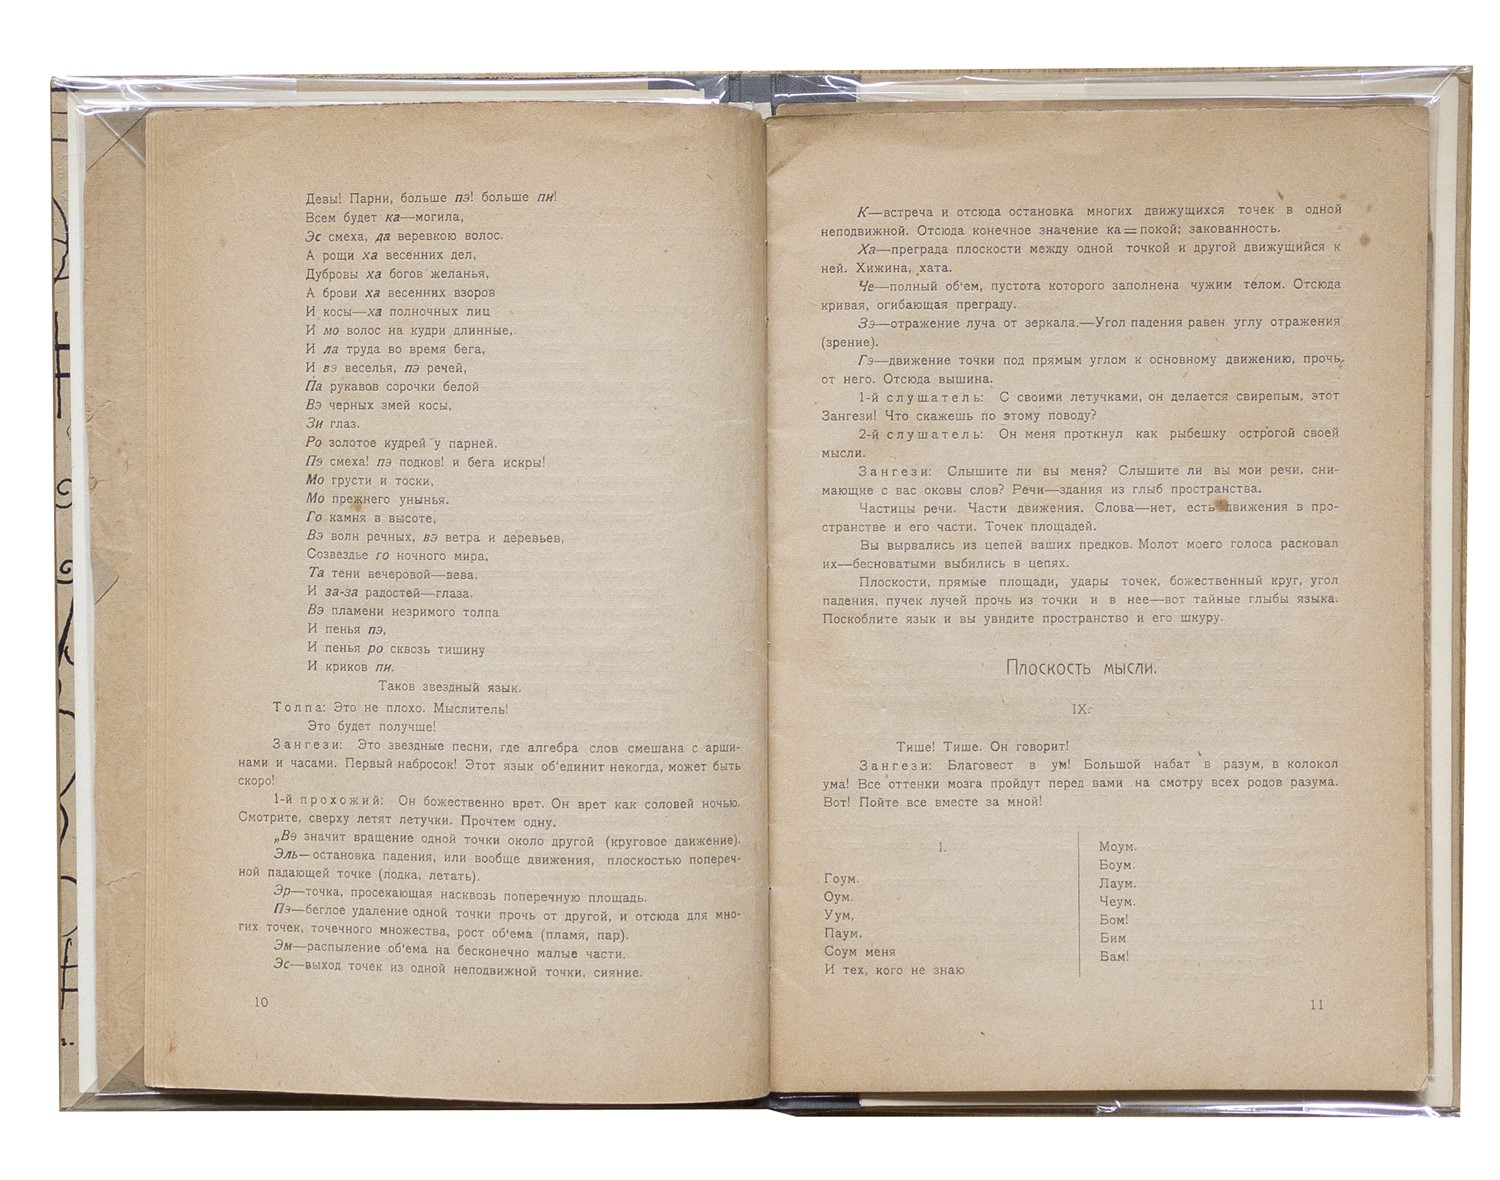 Девы! Парни, больше пэ! больше пи!
Всем будет ка—могила,
Эс смеха, да веревкою волос.
А рощи ха весенних дел,
Дубровы ха богов желанья,
А брови ха весенних взоров
И косы—ха полночных лиц
И мо волос на кудри длинные,
И ла труда во время бега,
И вэ веселья, пэ речей,
Па рукавов сорочки белой
Вэ черных змей косы,
Зи глаз.
Ро золотое кудрей у парней.
Пэ смеха! пэ подков! и бега искры!
Мо грусти и тоски,
Мо прежнего унынья.
Го камня в высоте,
Вэ волн речных, вэ ветра и деревьев,
Созвездье го ночного мира,
Та тени вечеровой—вева,
И за-за радостей—глаза.
Вэ пламени незримого толпа
И пенья пэ,
И пенья ро сквозь тишину
И криков пи.
Таков звездный язык.
Толпа: Это не плохо. Мыслитель!
Это будет получше!
Зангези: Это звездные песни, где алгебра слов смешана с арши-
нами и часами. Первый набросок! Этот язык об'единит некогда, может быть
скоро!
1-й прохожий: Он божественно врет. Он врет как соловей ночью.
Смотрите, сверху летят летучки. Прочтем одну.
„Вэ значит вращение одной точки около другой (круговое движение).
Эль—остановка падения, или вообще движения, плоскостью попереч-
ной падающей точке (лодка, летать).
Эр—точка, просекающая насквозь поперечную площадь.
Пэ—беглое удаление одной точки прочь от другой, и отсюда для мно-
гих точек, точечного множества, рост об'ема (пламя, пар).
Эм—распыление об'ема на бесконечно малые части.
Эс—выход точек из одной неподвижной точки, сияние.
10
К—встреча и отсюда остановка многих движущихся точек в одной
неподвижной. Отсюда конечное значение ка=покой; закованность.
Ха—преграда плоскости между одной точкой и другой движущийся к
ней. Хижина, хата.
Че—полный об'ем, пустота которого заполнена чужим телом. Отсюда
кривая, огибающая преграду.
Зэ—отражение луча от зеркала.—Угол падения равен углу отражения
(зрение).
Гэ—движение точки под прямым углом к основному движению, прочь
от него. Отсюда вышина.
1-й слушатель: С своими летучками, он делается свирепым, этот
Зангези! Что скажешь по этому поводу?
2-й слушатель: Он меня проткнул как рыбешку острогой своей
мысли.
Зангези: Слышите ли вы меня? Слышите ли вы мои речи, сни-
мающие с вас оковы слов? Речи—здания из глыб пространства.
Частицы речи. Части движения. Слова—нет, есть движения в про-
странстве и его части. Точек площадей.
Вы вырвались из цепей ваших предков. Молот моего голоса расковал
их—бесноватыми выбились в цепях.
Плоскости, прямые площади, удары точек, божественный круг, угол
падения, пучек лучей прочь из точки и в нее—вот тайные глыбы языка.
Поскоблите язык и вы увидите пространство и его шкуру.
Плоскость мысли.
IX.
Тише! Тише. Он говорит!
Зангези: Благовест в ум! Большой набат в разум, в колокол
ума! Все оттенки мозга пройдут перед вами на смотру всех родов разума.
Вот! Пойте все вместе за мной!
I.
Гоум.
Оум.
Уум,
Паум.
Соум меня
И тех, кого не знаю
Моум.
Боум.
Лаум.
Чеум.
Бом!
Бим
Бам!
11